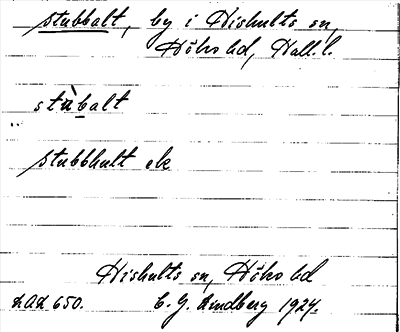 stubbalt, by i Hishults sn,
Höks hd, Hall. l.
stùbalt
stubbhult ek
Hishults sn, Höks hd
LAL 650. C. G. Lindberg 1924.